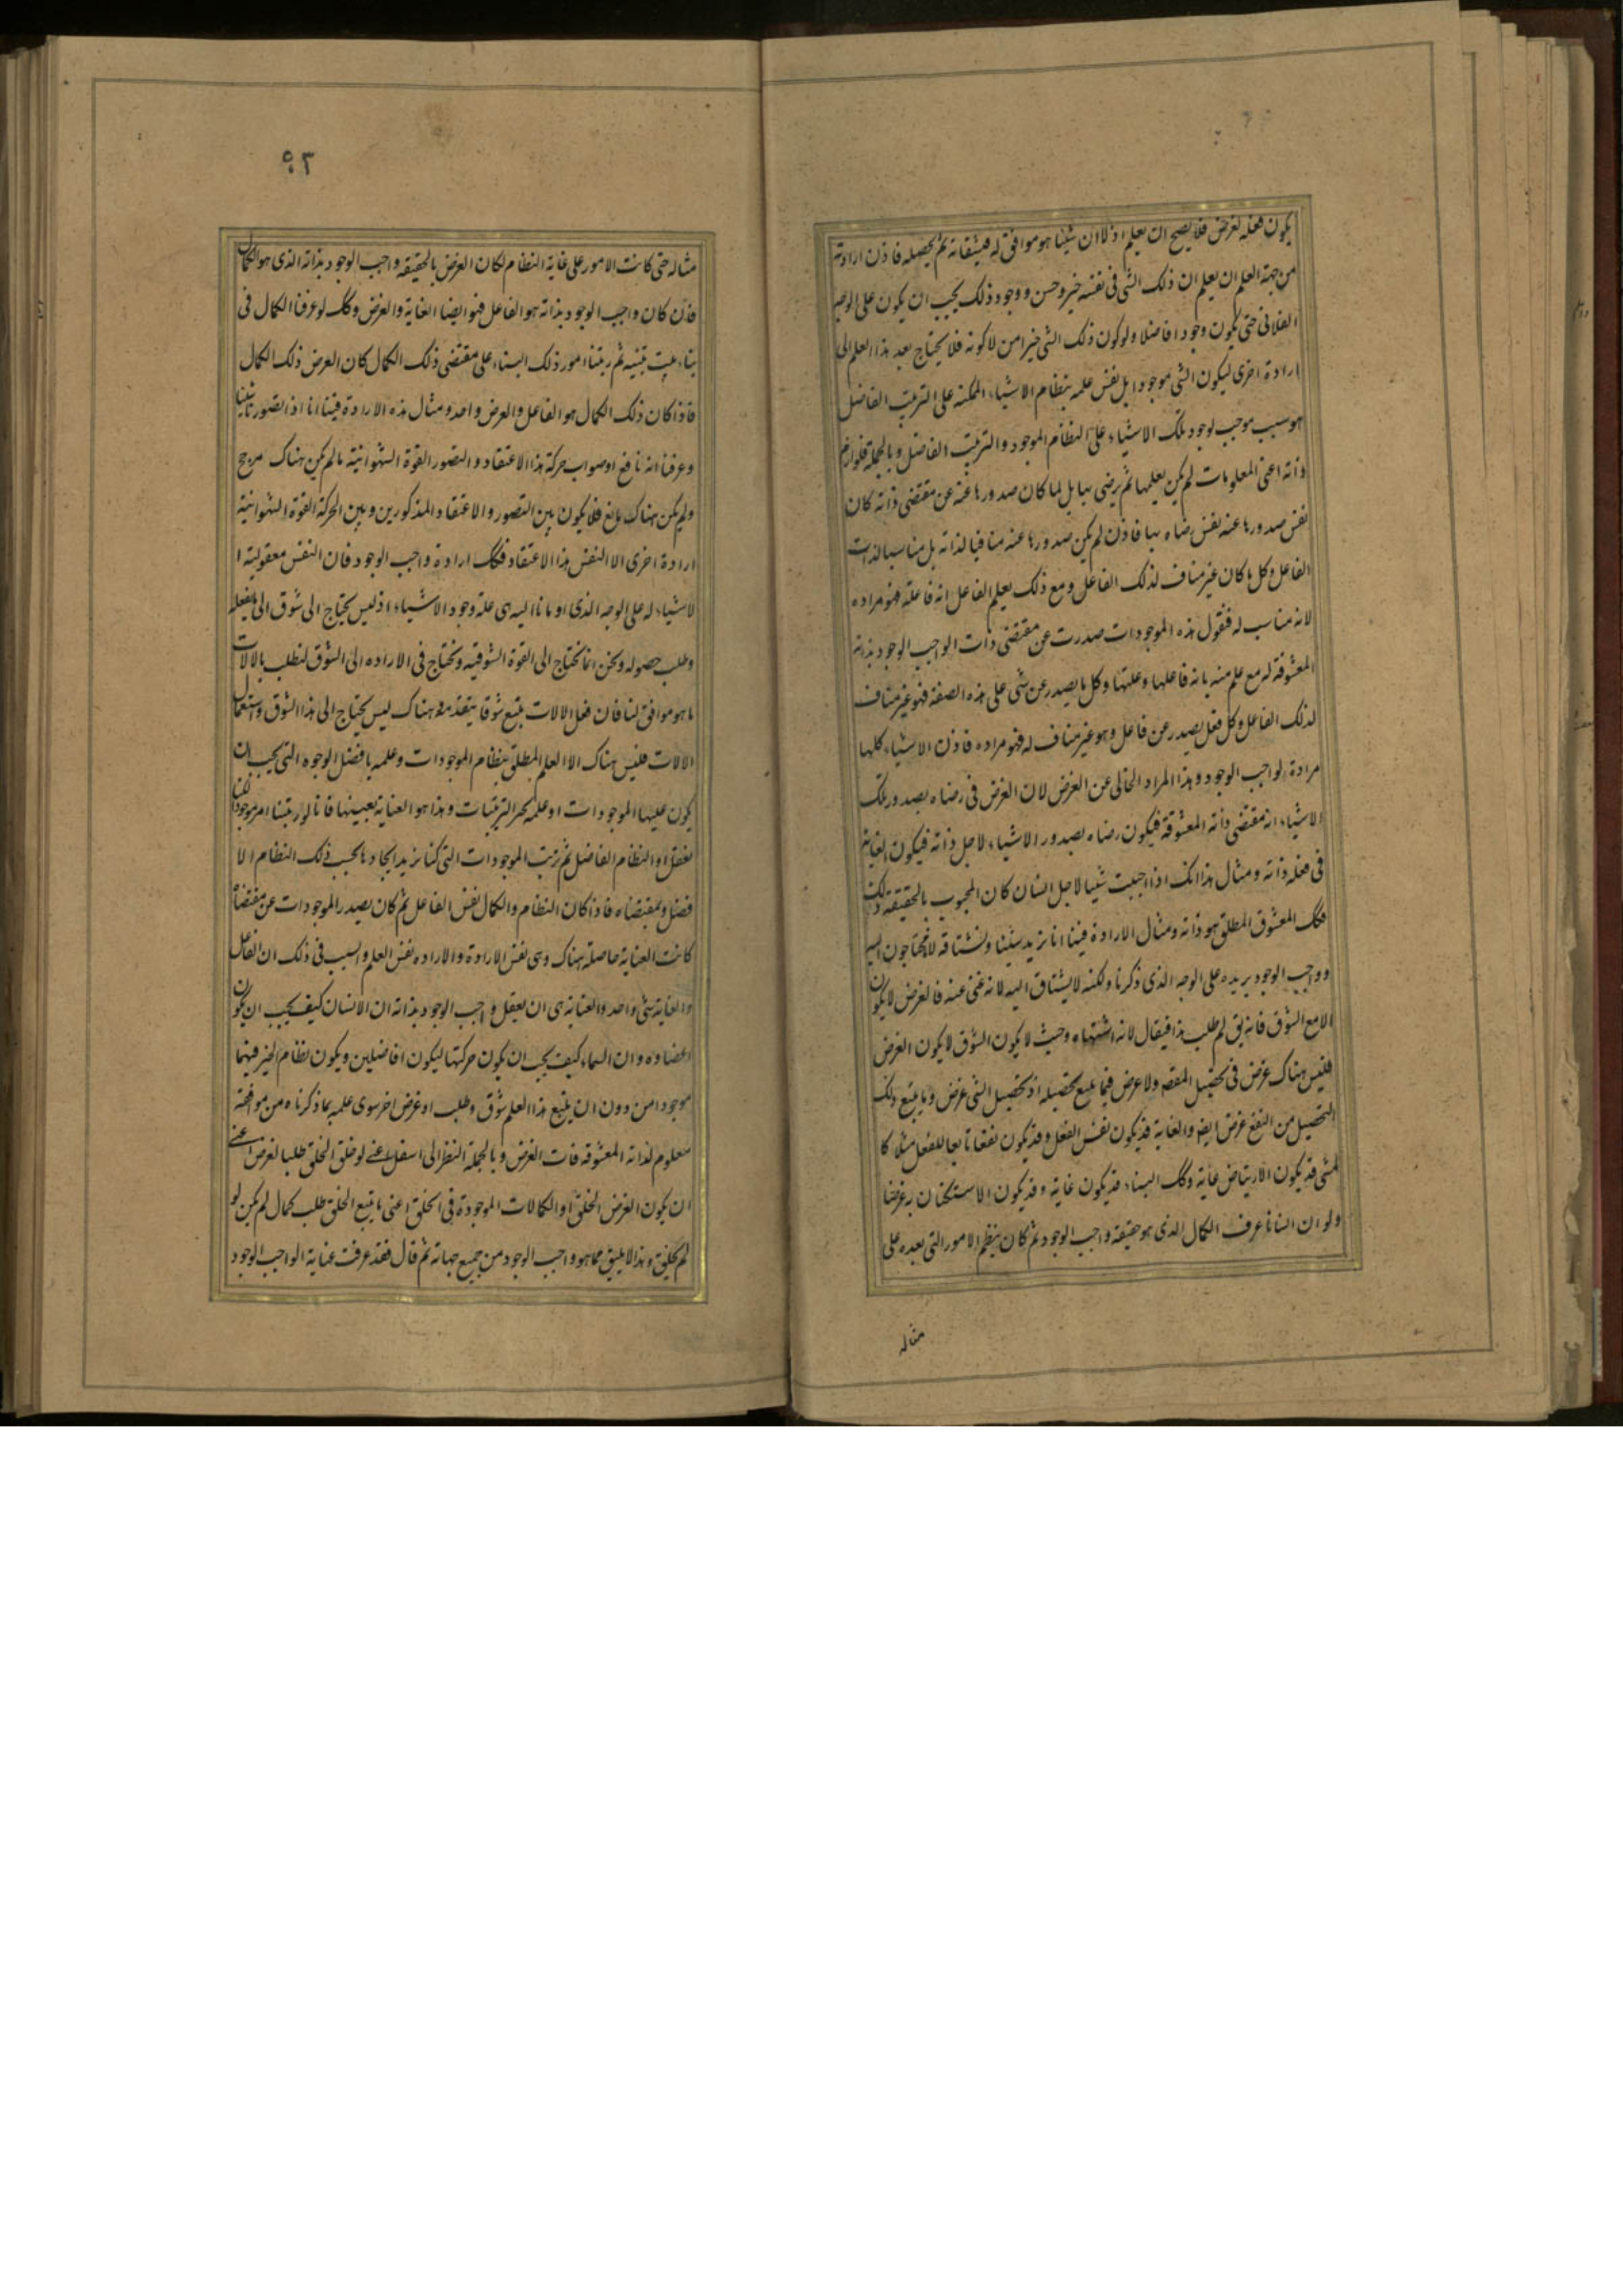 يكون فعله لغرض فلا يصح ان يعلم اولا ان شيئا هو موافق له فيشتاقه ثم يحصله فاذن ارادته
من جهة العلم ان يعلم ان ذلك الشي في نفسه خير وحسن ووجود ذلك يجب ان يكون على الوجه
الفلاني حتى يكون وجودا فاضلا ولو كون ذلك الشي خيرا من لا كونه فلا يحتاج بعد هذا العلم الى
ارادة اخرى ليكون الشي موجودا بل نفس علمه بنظام الاشياء الممكنه على الترتيب الفاضل
هو سبب موجب لوجود تلك الاشياء على النظام الموجود والترتيب الفاضل وبالجملة فلوازم
ذاته اعني المعلومات لم يكن يعلمها ثم يرضى بها بل لما كان صدورها عنه عن مقتضى ذاته كان
نفس صدورها عنه نفس رضاه بها فاذن لم يكن صدورها عنه منافيا لذاته بل مناسبا لذات
الفاعل وكل ما كان غير مناف لذلك الفاعل ومع ذلك يعلم الفاعل انه فاعله فهو مراده
لانه مناسب له فنقول هذه الموجودات صدرت عن مقتضى ذات الواجب الوجود بذاته
المعشوقة له مع علم منه بانه فاعلها وعلتها وكل ما يصدر عن شي على هذه الصفه فهو غير مناف
لذلك الفاعل وكل فعل يصدر عن فاعل وهو غير مناف له فهو مراده فاذن الاشياء كلها
مرادة لواجب الوجود وهذا المراد الخالى عن الغرض لان الغرض في رضاه بصدور تلك
الاشياء انه مقتضى ذاته المعشوقة فيكون رضاه بصدور الاشياء لاجل ذاته فيكون الغاية
في فعله ذاته ومثال هذا انك اذا احببت شيئا لاجل انسان كان المحبوب بالحقيقة ذلك
فكك المعشوق المطلق هو ذاته ومثال الارادة فينا انا نريد شيئا ونشتاقه لانا محتاجون اليه
وواجب الوجود يريده على الوجه الذي ذكرنا ولكنه لا يشتاق اليه لانه غني عنه فالغرض لا يكون
الا مع الشوق فانه يق لم طلب هذا فيقال لانه اشتهاه وحيث لا يكون الشوق لا يكون الغرض
فليس هناك غرض في تحصيل المقصه ولا غرض فيما يتبع تحصيله اذ تحصيل الشي غرض وما يتبع ذلك
التحصيل من النفع غرض ايضه والغاية قد يكون نفس الفعل وقد يكون نفعا تابعا للفعل مثلا كا
لمشي قد يكون الارتياض غاية وكك البناء قد يكون غاية وقد يكون الاستكنان به غرضا
ولو ان انسانا عرف الكمال الذي هو حقيقة واجب الوجود ثم كان ينظم الامور التي بعده على
مثاله
٥٩٣
مثاله حتى كانت الامور على غاية النظام لكان الغرض بالحقيقه واجب الوجود بذاته الذي هو الكمال
فان كان واجب الوجود بذاته هو الفاعل فهو ايضا الغاية والغرض وكك لو عرفنا الكمال في
بناء بيت نبنيه ثم رتبنا امور ذلك البناء على مقتضى ذلك الكمال كان الغرض ذلك الكمال
فاذا كان ذلك الكمال هو الفاعل والغرض واحد ومثال هذه الارادة فينا انا اذا تصورنا شيئا
وعرفنا انه نافع او صواب حركة هذا الاعتقاد والتصور القوة الشهوانية ما لم يكن هناك مرجح
ولم يكن هناك مانع فلا يكون بين التصور والاعتقاد المذكورين وبين الحركة القوة الشهوانية
ارادة اخرى الا النفس هذا الاعتقاد فكك ارادة واجب الوجود فان النفس معقولية ا
لاشياء له على الوجه الذي اومانا اليه هي علة وجود الاشياء اذ ليس يحتاج الى شوق الى ما يفعله
وطلب حصوله ونحن انما نحتاج الى القوة الشوقيه ونحتاج في الاراده الى الشوق لنطلب بالالات
ما هو موافق لنا فان فعل الالات يتبع شوقا يتقدمه وهناك ليس يحتاج الى هذا الشوق واستعمال
الالات فليس هناك الا العلم المطلق بنظام الموجودات وعلمه بافضل الوجوه التي يجب ان
يكون عليها الموجودات او علمه بخير الترتيبات وهذا هو العناية بعينها فانا لو رتبنا امرا موجودا لكنا
نعقل اولا النظام الفاضل ثم نرتب الموجودات التي كنا نريد ايجادها بحسب ذلك النظام الا
فضل وبمقتضاه فاذا كان النظام والكمال نفس الفاعل ثم كان يصدر الموجودات عن مقتضاه
كانت العناية حاصلة هناك وهي نفس الارادة والاراده نفس العلم والسبب في ذلك ان الفاعل
والغاية شي واحد والعناية هي ان يعقل واجب الوجود بذاته ان الانسان كيف يجب ان يكون
اعضاوه وان السماء كيف يجب ان يكون حركتها ليكون افاضلين ويكون نظام الخير فيهما
موجودا من دون ان يتبع هذا العلم شوق وطلب او غرض اخر سوى علمه بما ذكرناه من موافقة
معلومه لذاته المعشوقه فان الغرض وبالجملة النظر الى اسفل اعني لو خلق الخلق طلبا لغرض اعني
ان يكون الغرض الخلق او الكمالات الموجودة في الخلق اعني ما يتبع الخلق طلب كمال لم يكن لو
لم يخلق وهذا لا يليق بما هو واجب الوجود من جميع جهاته ثم قال فقد عرفت عناية الواجب الوجود